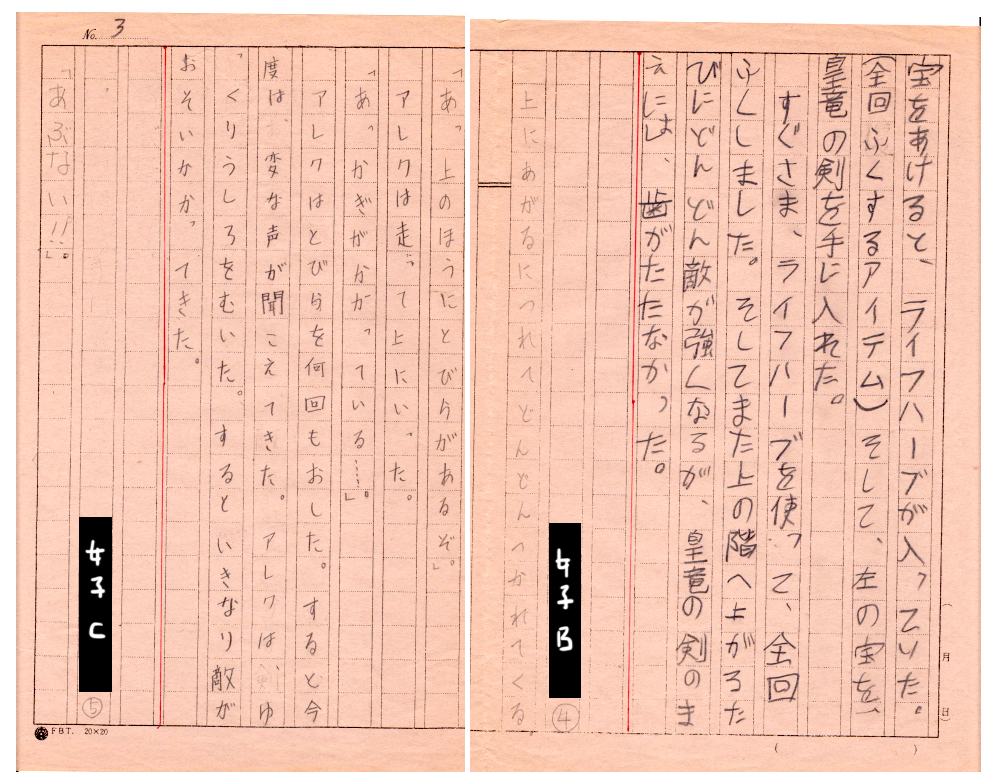 宝をあけると、ライフハーブが入っていた。
(全回ふくするアイテム)そして、左の宝を、
皇竜の剣を手に入れた。
すぐさま、ライフハーブを使って、全回
ふくしました。そしてまた上の階へ上がろた
びにどんどん敵が強くなるが、皇竜の剣のま
えには、歯がたたなかった。
女子B
上にあがるにつれてどんどんつかれてくる
④
(月
日)
( )
No. 3
「あっ上のほうにとびらがあるぞ」。
アレクは走って上にいった。
「あっかぎがかかっている……」。
アレクはとびらを何回もおした。すると今
度は、変な声が聞こえてきた。アレクは剣ゆ
っくりうしろをむいた。するといきなり敵が
おそいかかってきた。
女子C
「あぶない!!」。
⑤
FBT. 20×20